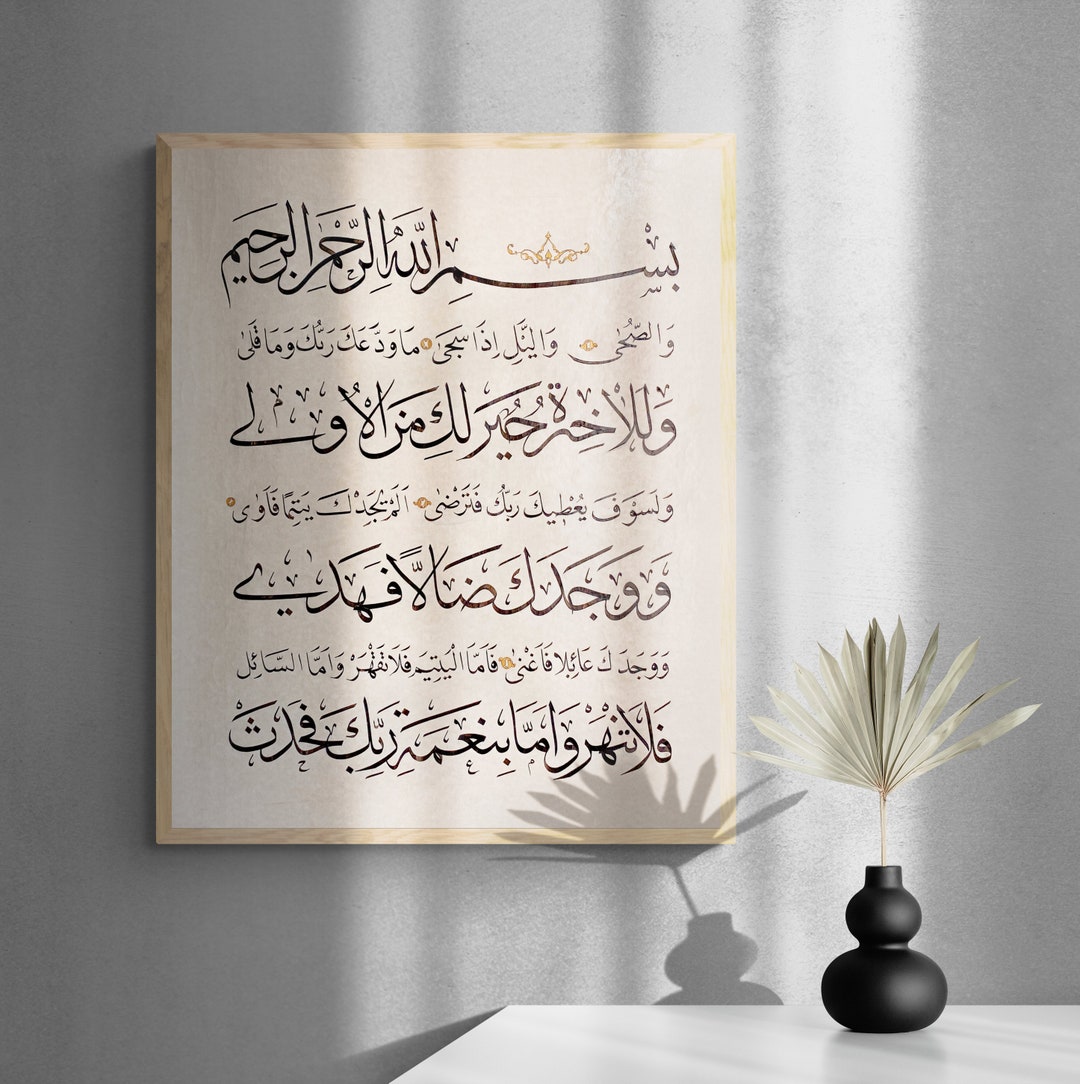 بِسْمِ اللّٰهِ الرَّحْمٰنِ الرَّحِيمِ
وَالضُّحٰى وَالَّيْلِ اِذَا سَجٰى مَا وَدَّعَكَ رَبُّكَ وَمَا قَلٰى
وَلَلْاٰخِرَةُ خَيْرٌ لَكَ مِنَ الْاُولٰى
وَلَسَوْفَ يُعْطِيكَ رَبُّكَ فَتَرْضٰى اَلَمْ يَجِدْكَ يَتِيمًا فَاٰوٰى
وَوَجَدَكَ ضَالًّا فَهَدٰى
وَوَجَدَكَ عَائِلًا فَاَغْنٰى فَاَمَّا الْيَتِيمَ فَلَا تَقْهَرْ وَاَمَّا السَّائِلَ
فَلَا تَنْهَرْ وَاَمَّا بِنِعْمَةِ رَبِّكَ فَحَدِّثْ